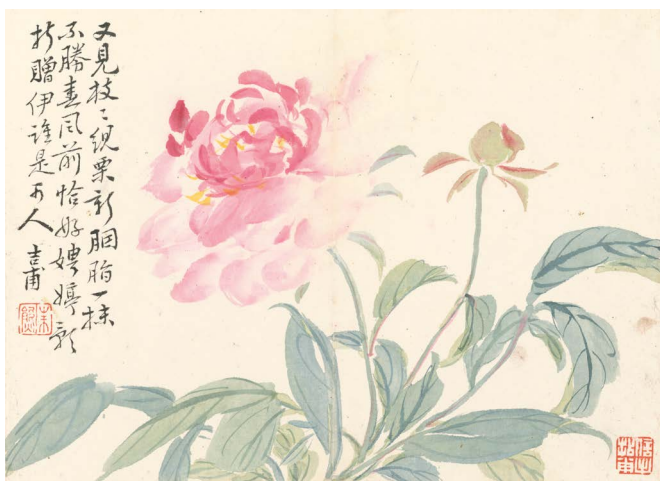 又見枝〻粟新胭脂一抹
不勝春風前恰好娉婷影
折贈伊誰是可人
吉甫